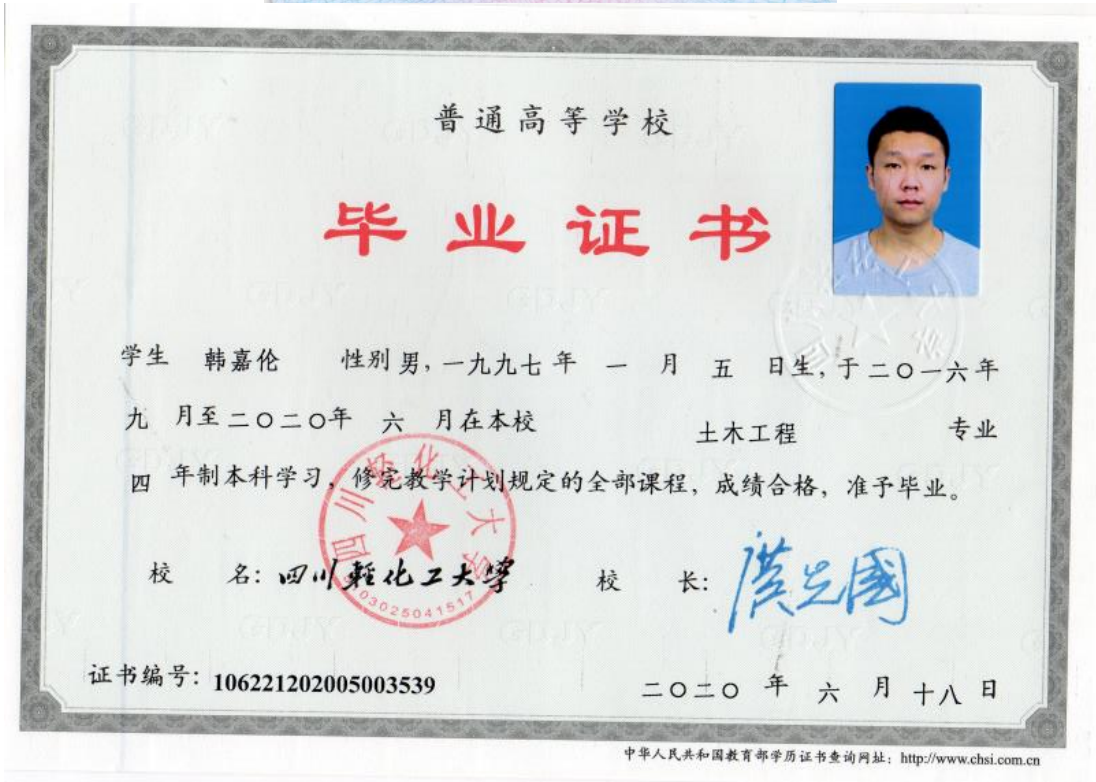 普通高等学校
毕业证书
学生 韩嘉伦 性别 男，一九九七 年 一 月 五 日生，于二〇一六年
九 月至二〇二〇年 六 月在本校 土木工程 专业
四 年制本科学习，修完教学计划规定的全部课程，成绩合格，准予毕业。
四川轻化工大学
5103025041517
校 名：四川輕化工大學 校 长：
证书编号：106221202005003539 二〇二〇 年 六 月 十八 日
中华人民共和国教育部学历证书查询网址：http://www.chsi.com.cn